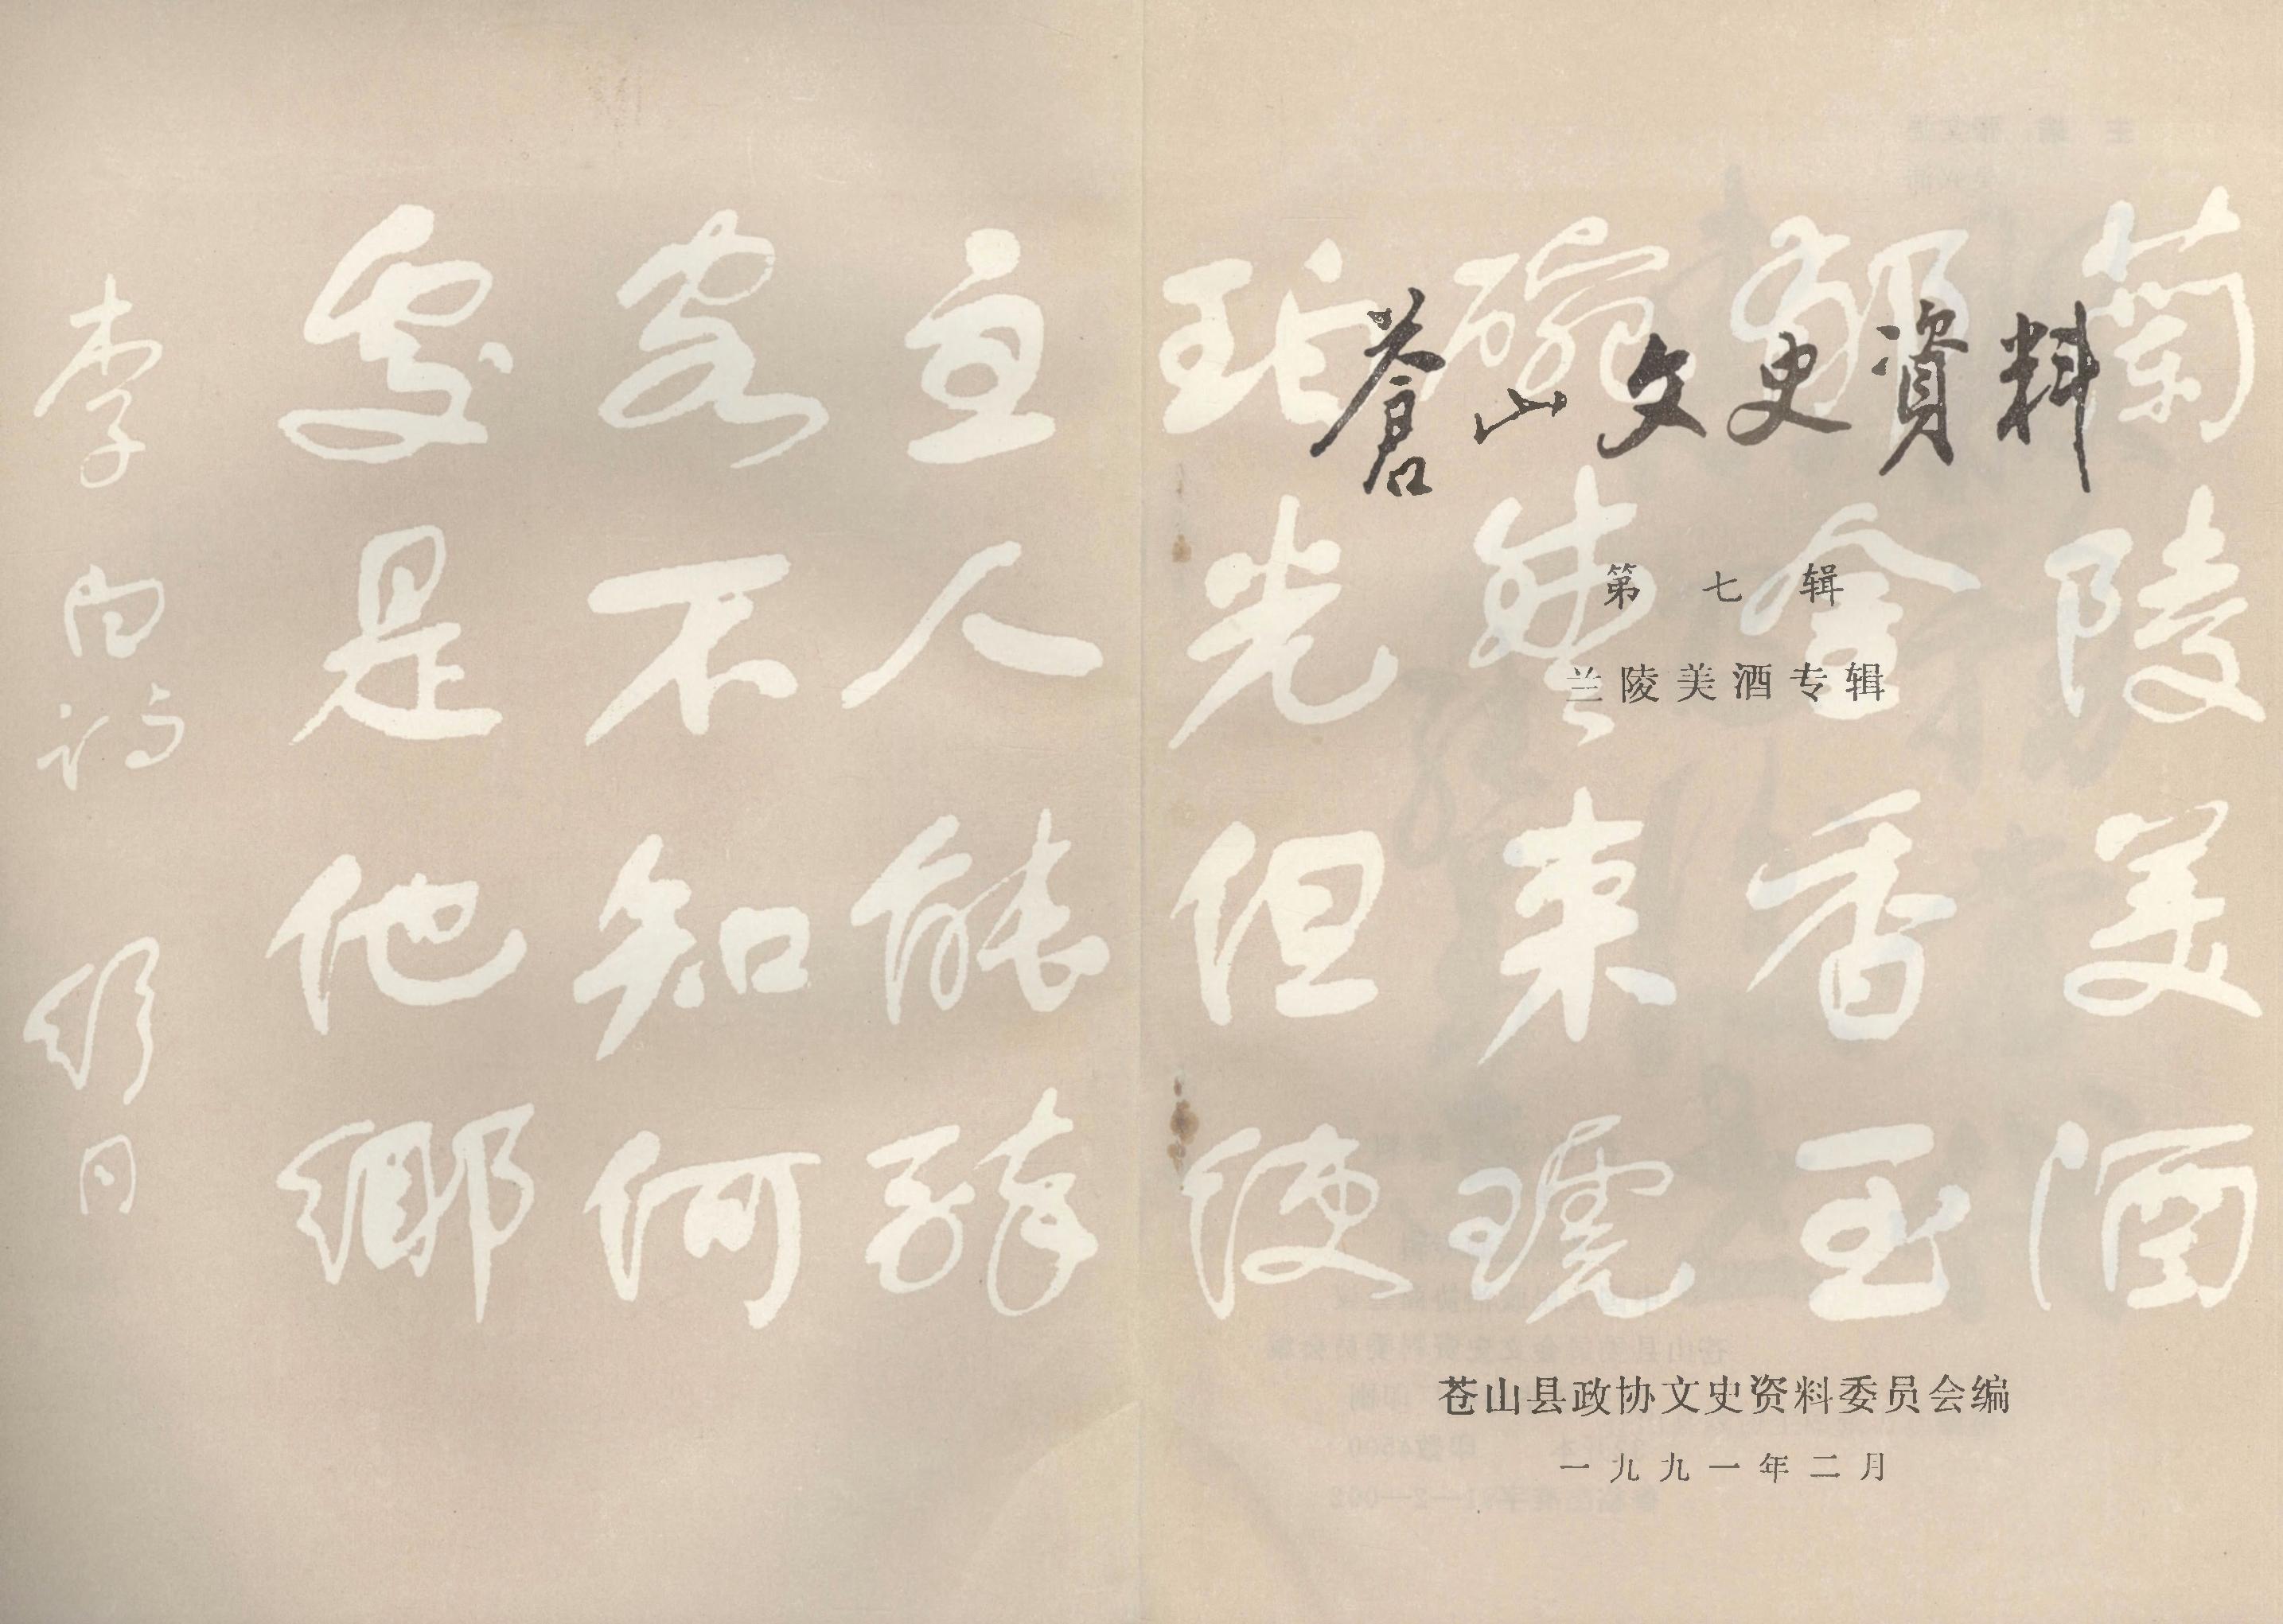 蒼山文史資料
第七辑
兰陵美酒专辑
苍山县政协文史资料委员会编
一九九一年二月
蘭陵美酒
鬱金香玉
碗盛來琥
珀光但使
主人能醉
客不知何
處是他鄉
李白詩